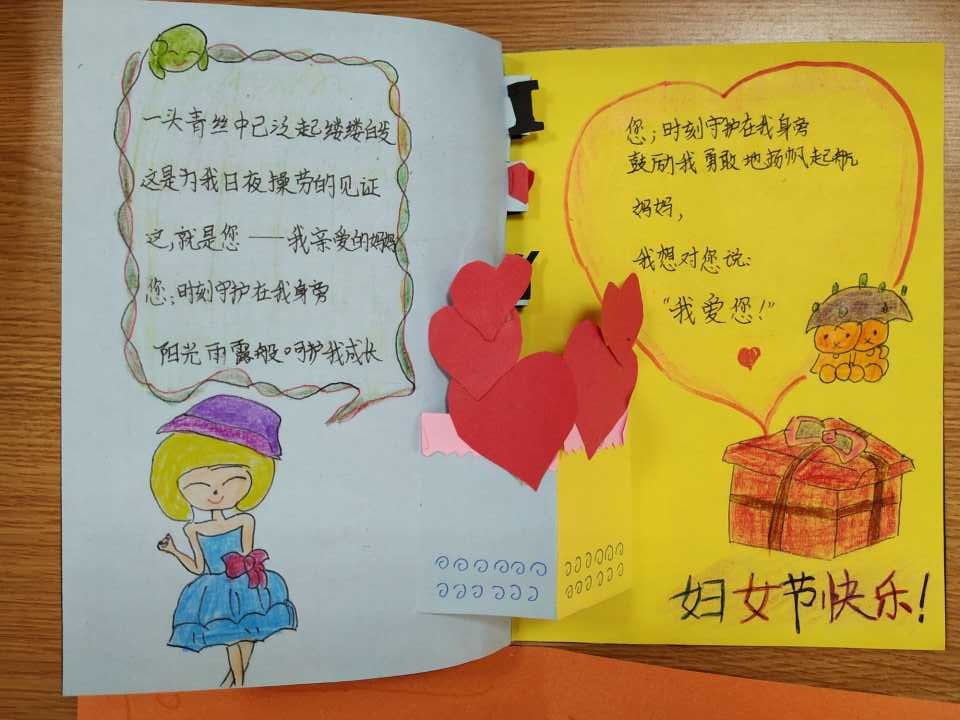 一头青丝中已泛起缕缕白发
这是为我日夜操劳的见证
这,就是您——我亲爱的妈妈
您;时刻守护在我身旁
阳光雨露般呵护我成长
I
Y
您;时刻守护在我身旁
鼓励我勇敢地扬帆起航
妈妈,
我想对您说:
“我爱您!”
妇女节快乐!